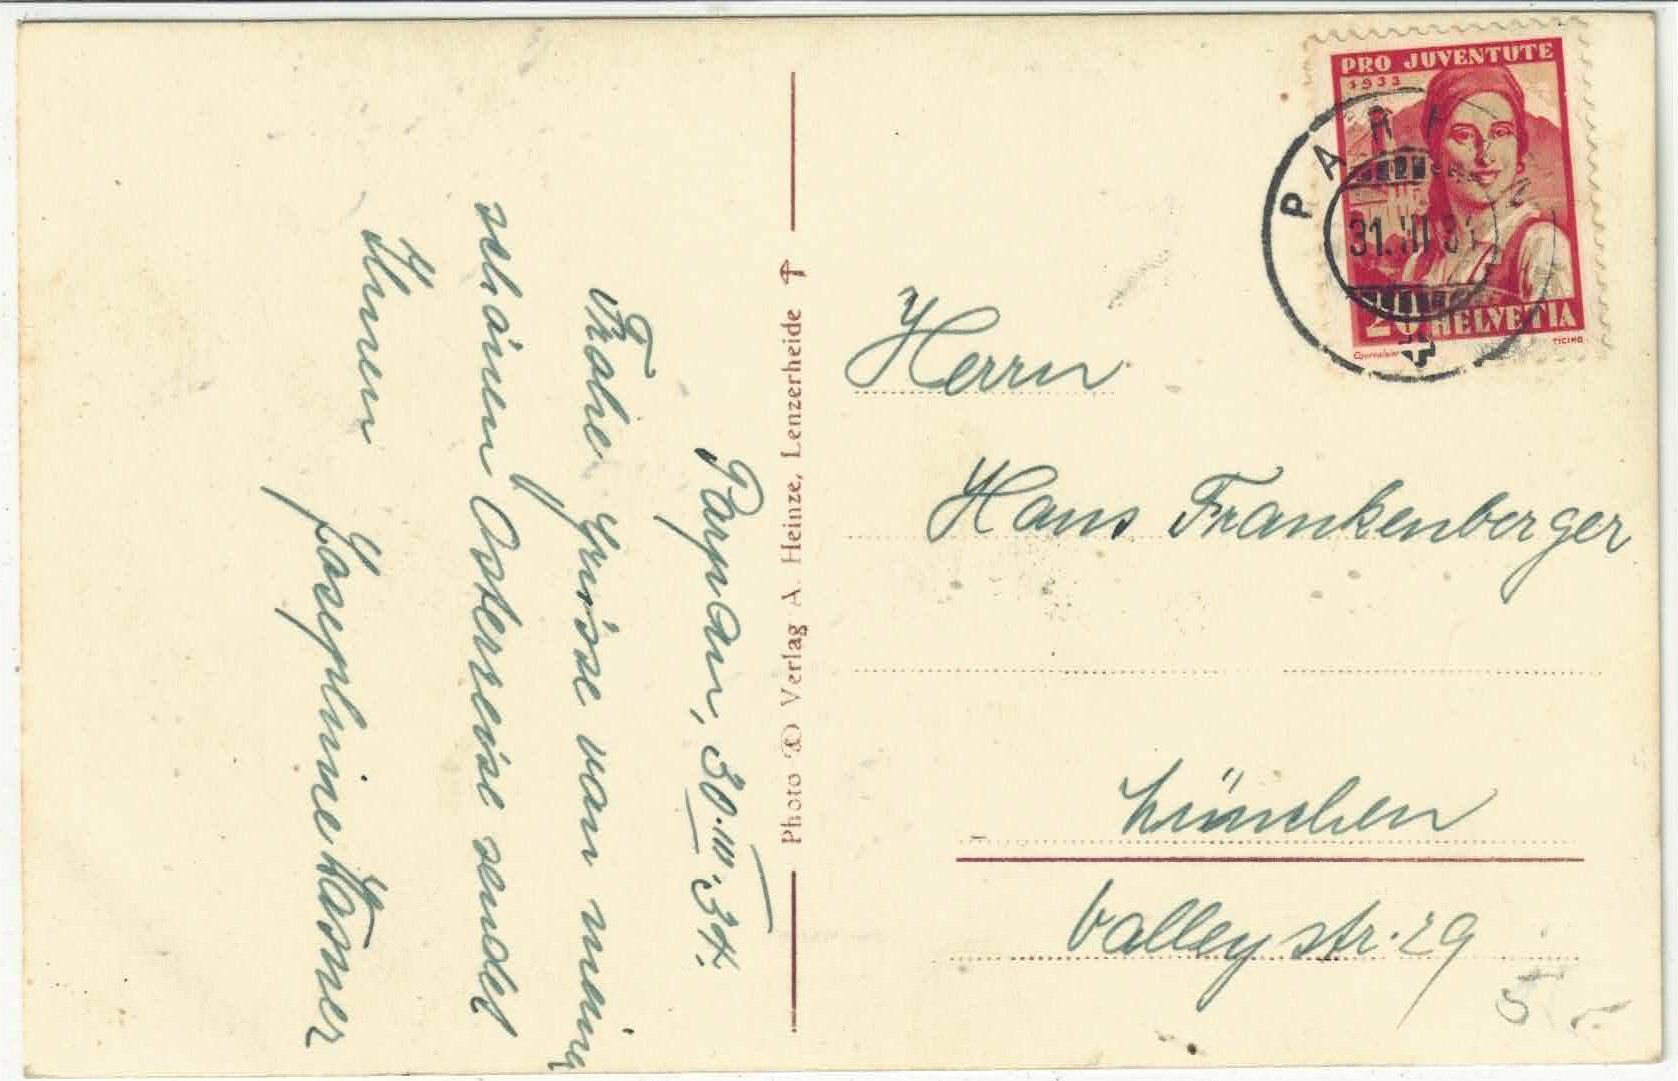 Parpan, 30.III.34.
Frohe Grüsse von meiner
schönen Osterreise sendet
Ihnen
Josephine
Photo Verlag A. Heinze, Lenzerheide
PRO JUVENTUTE
1933
PARPAN
31.III.34
20 HELVETIA
Courvoisier
TICINO
Herrn
Hans Frankenberger
München
Valleystr. 29
5.